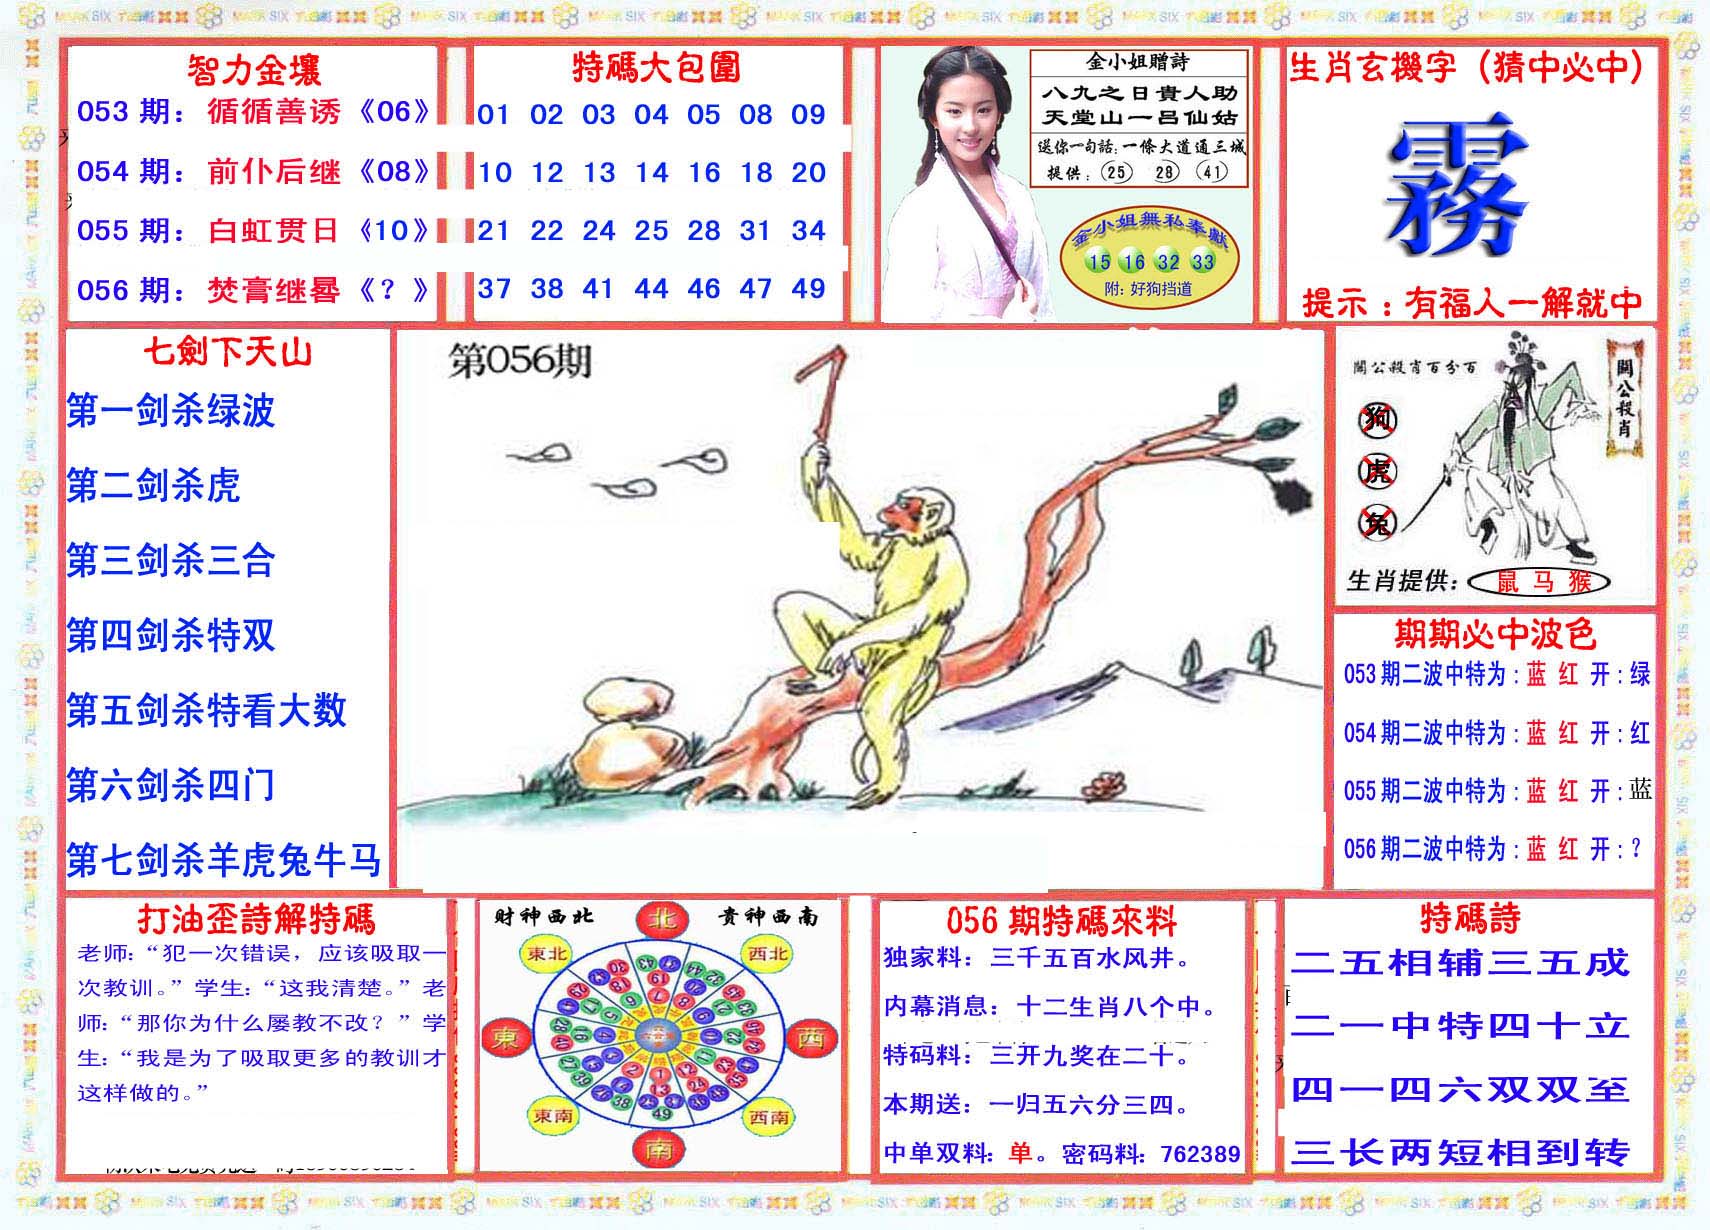 智力金壤
053 期：循循善诱《06》
054 期：前仆后继《08》
055 期：白虹贯日《10》
056 期：焚膏继晷《？》
特碼大包圍
01 02 03 04 05 08 09
10 12 13 14 16 18 20
21 22 24 25 28 31 34
37 38 41 44 46 47 49
金小姐贈詩
八九之日貴人助
天堂山一呂仙姑
送你一句話：一條大道通三城
提供：25 28 41
金小姐無私奉獻
15 16 32 33
附：好狗挡道
生肖玄機字（猜中必中）
霧
提示：有福人一解就中
七劍下天山
第一剑杀绿波
第二剑杀虎
第三剑杀三合
第四剑杀特双
第五剑杀特看大数
第六剑杀四门
第七剑杀羊虎兔牛马
第056期
關公殺肖百分百
關公殺肖
狗
虎
兔
生肖提供：鼠 马 猴
期期必中波色
053期二波中特为：蓝 红 开：绿
054期二波中特为：蓝 红 开：红
055期二波中特为：蓝 红 开：蓝
056期二波中特为：蓝 红 开：？
打油歪詩解特碼
老师：“犯一次错误，应该吸取一
次教训。”学生：“这我清楚。”老
师：“那你为什么屡教不改？”学
生：“我是为了吸取更多的教训才
这样做的。”
财神西北
貴神西南
北
東北
西北
東
西
東南
西南
南
056期特碼來料
独家料：三千五百水风井。
内幕消息：十二生肖八个中。
特码料：三开九奖在二十。
本期送：一归五六分三四。
中单双料：单。密码料：762389
特碼詩
二五相辅三五成
二一中特四十立
四一四六双双至
三长两短相到转